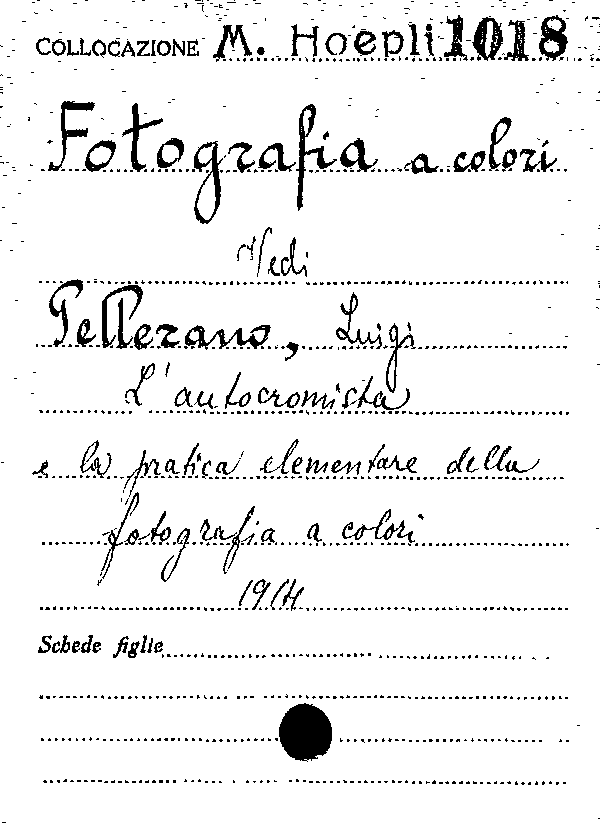 COLLOCAZIONE M. Hoepli 1018
Fotografia a colori
Vedi
Pellerano, Luigi
L'autocromista
e la pratica elementare della
fotografia a colori
1914
Schede figlie